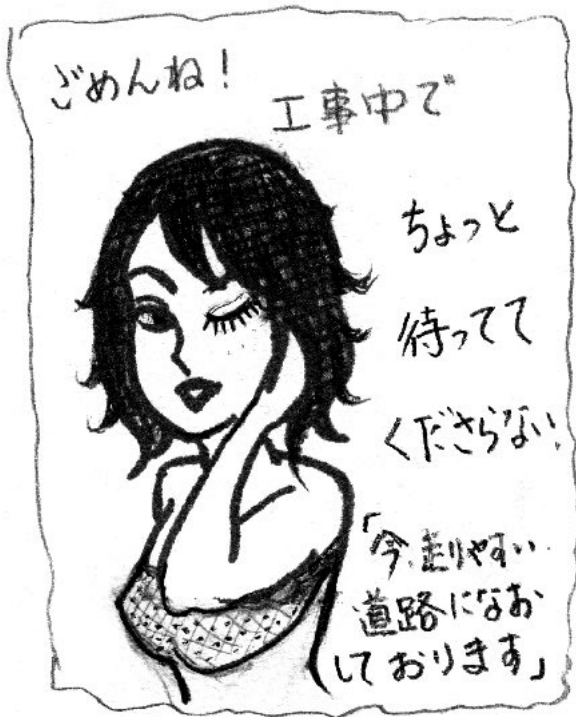 ごめんね!
工事中で
ちょっと
待ってて
くださらない
「今、走りやすい
道路になお
しております」